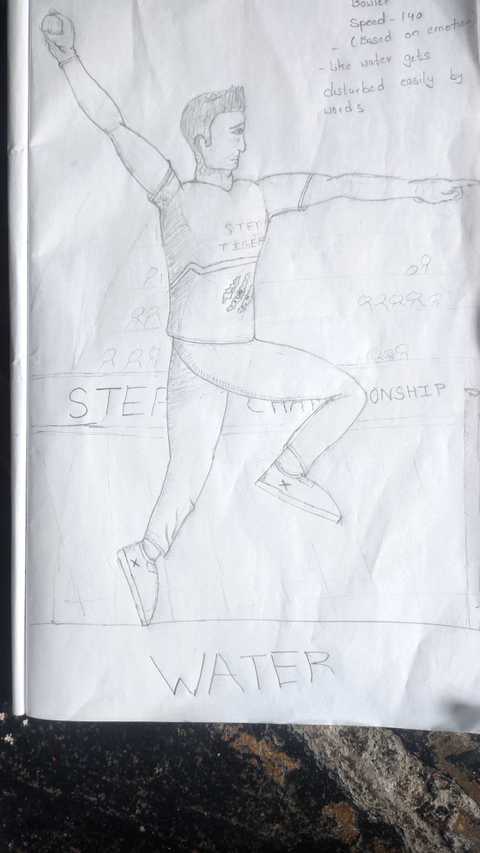 Bowler
Speed - 140
- (Based on emotion
- like water gets
disturbed easily by
words
STEP
TIGER
STEP CHAMPIONSHIP
WATER